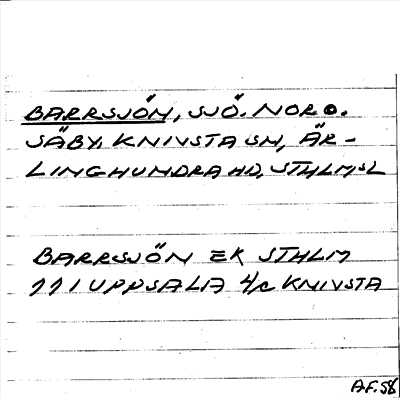 BARRSJÖN, SJÖ. NOR O.
SÄBY, KNIVSTA SN, ÄR-
LINGHUNDRA HD, STHLMSL
BARRSJÖN EK STHLM
111 UPPSALA 4/c KNIVSTA
AF.58